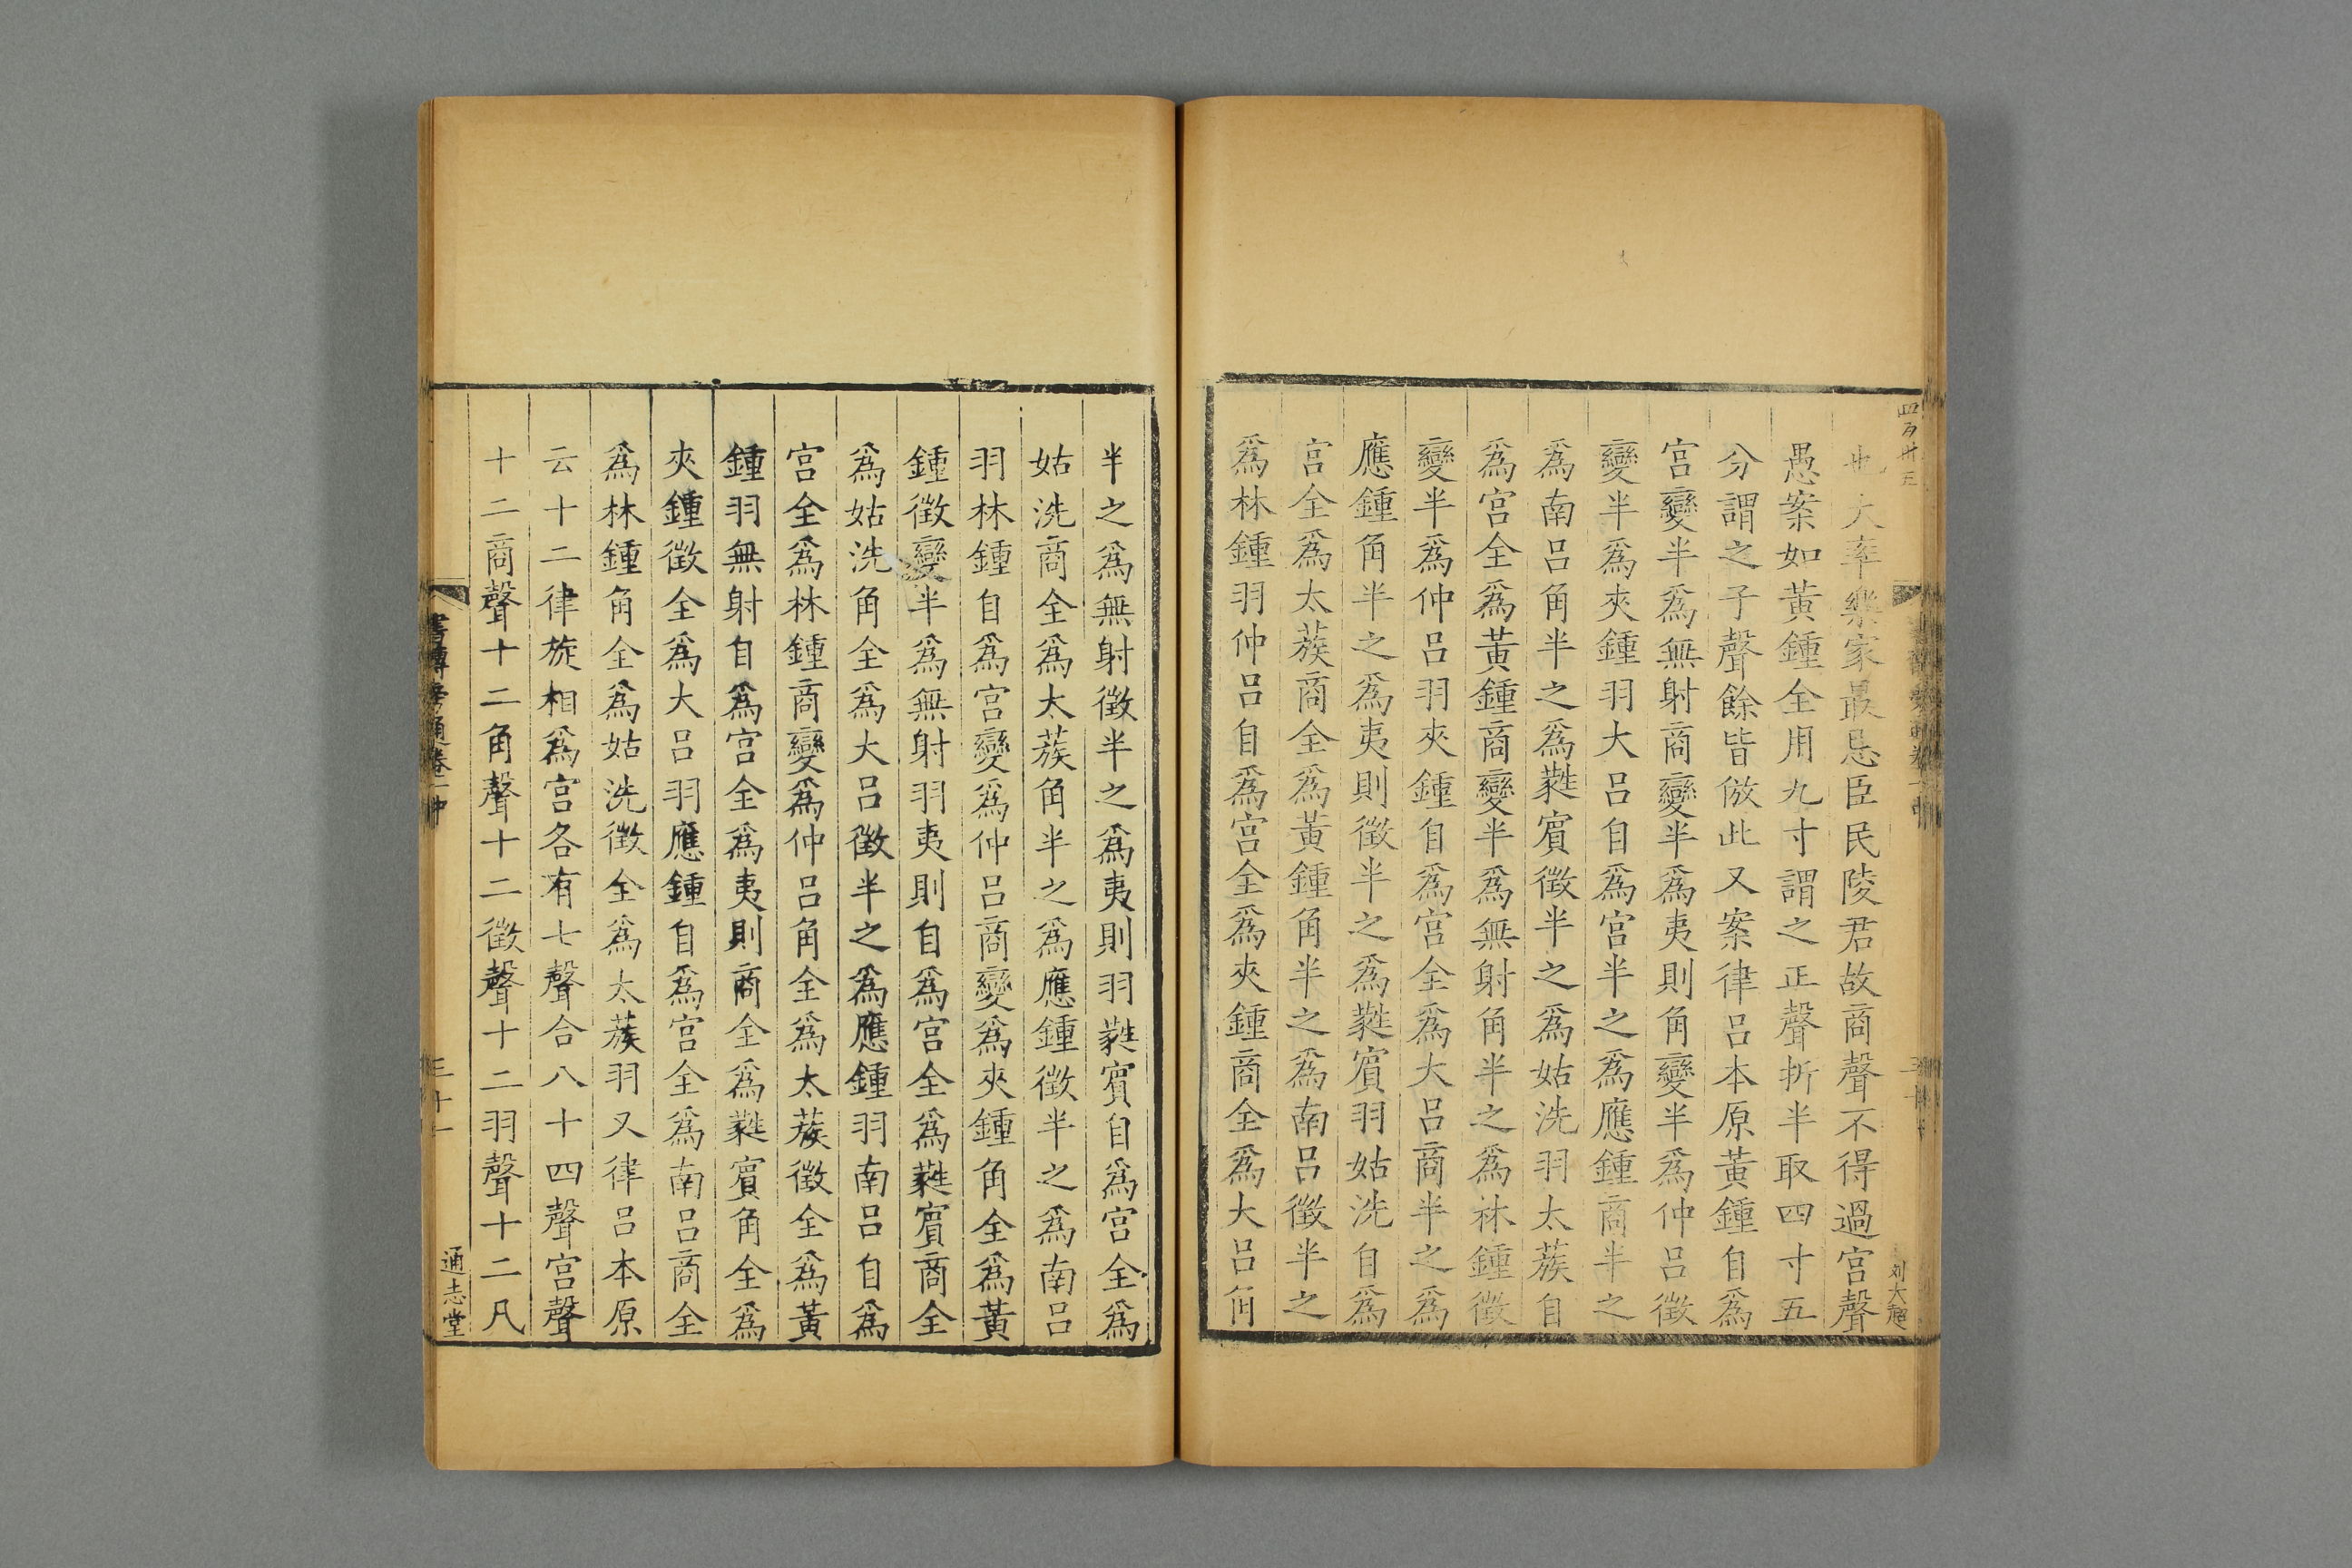 四百卅三
也大率樂家最忌臣民陵君故商聲不得過宮聲
愚案如黃鍾全用九寸謂之正聲折半取四寸五
分謂之子聲餘皆倣此又案律呂本原黃鍾自爲
宮變半爲無射商變半爲夷則角變半爲仲呂徵
變半爲夾鍾羽大呂自爲宮半之爲應鍾商半之
爲南呂角半之爲蕤賓徵半之爲姑洗羽太蔟自
爲宮全爲黃鍾商變半爲無射角半之爲林鍾徵
變半爲仲呂羽夾鍾自爲宮全爲大呂商半之爲
應鍾角半之爲夷則徵半之爲蕤賓羽姑洗自爲
宮全爲太蔟商全爲黃鍾角半之爲南呂徵半之
爲林鍾羽仲呂自爲宮全爲夾鍾商全爲大呂角
刘大魁
半之爲無射徵半之爲夷則羽蕤賓自爲宮全爲
姑洗商全爲太蔟角半之爲應鍾徵半之爲南呂
羽林鍾自爲宮變爲仲呂商變爲夾鍾角全爲黃
鍾徵變半爲無射羽夷則自爲宮全爲蕤賓商全
爲姑洗角全爲大呂徵半之爲應鍾羽南呂自爲
宮全爲林鍾商變爲仲呂角全爲太蔟徵全爲黃
鍾羽無射自爲宮全爲夷則商全爲蕤賓角全爲
夾鍾徵全爲大呂羽應鍾自爲宮全爲南呂商全
爲林鍾角全爲姑洗徵全爲太蔟羽又律呂本原
云十二律旋相爲宮各有七聲合八十四聲宮聲
十二商聲十二角聲十二徵聲十二羽聲十二凡
書傳會通卷一中
三十一
通志堂